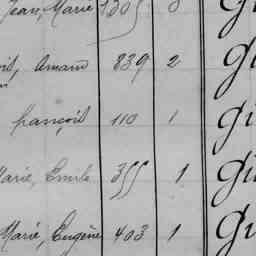 Jean, Marie 1305 8 G
Armand 839 2 G
françois 110 1 G
Marie, Emile 355 1 G
Marie, Eugène 403 1 G